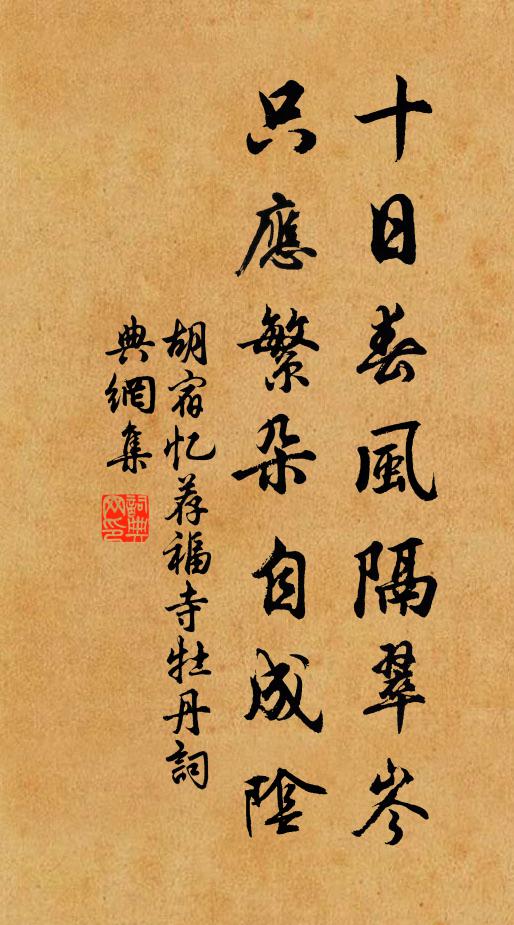 十日春風隔翠岑
只應繁朵自成陰
胡宿忆荐福寺牡丹詞
典網集
詞典網印